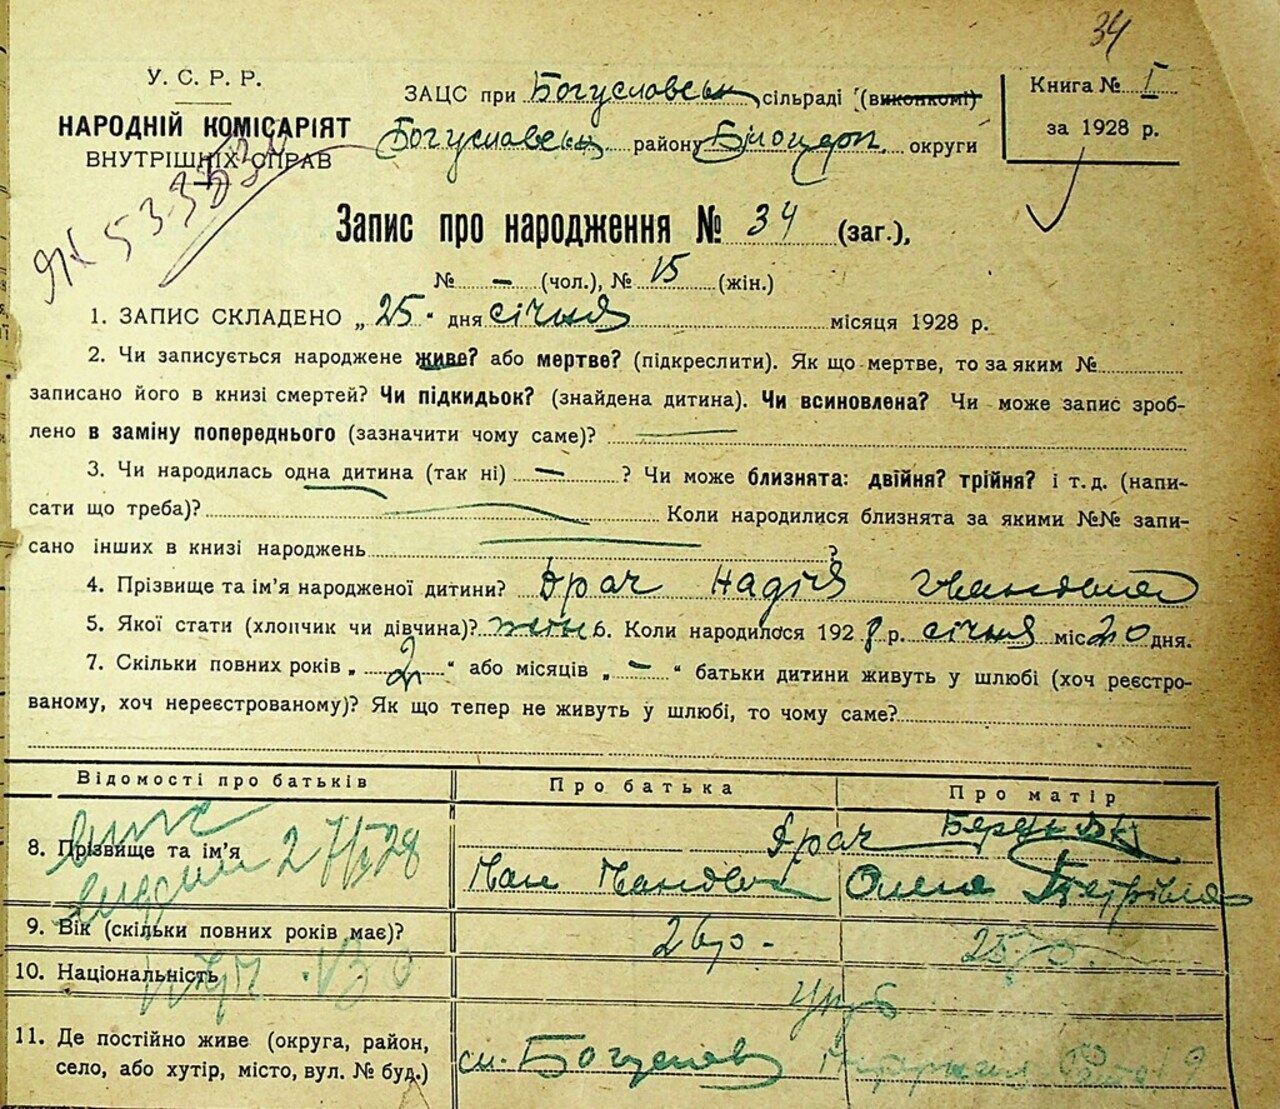 34
У. С. Р. Р.
НАРОДНІЙ КОМІСАРІЯТ
ВНУТРІШНІХ СПРАВ
ЗАЦС при Богуславськ сільраді (виконкомі)
Богуславськ району Білоцерк. округи
Книга № I
за 1928 р.
Запис про народження № 34 (заг.),
№ — (чол.), № 15 (жін.)
1. ЗАПИС СКЛАДЕНО „ 25 “ дня січня місяця 1928 р.
2. Чи записується народжене живе? або мертве? (підкреслити). Як що мертве, то за яким №
записано його в книзі смертей? Чи підкидьок? (знайдена дитина). Чи всиновлена? Чи може запис зроб-
лено в заміну попереднього (зазначити чому саме)? —
3. Чи народилась одна дитина (так ні) — ? Чи може близнята: двійня? трійня? і т. д. (напи-
сати що треба)? Коли народилися близнята за якими №№ запи-
сано інших в книзі народжень ?
4. Прізвище та ім’я народженої дитини? Драч Надія Ивановна
5. Якої стати (хлопчик чи дівчина)? жін 6. Коли народилося 1928 р. січня міс 20 дня.
7. Скільки повних років „ 2 “ або місяців „ — “ батьки дитини живуть у шлюбі (хоч реєстро-
ваному, хоч нереєстрованому)? Як що тепер не живуть у шлюбі, то чому саме?
Відомості про батьків
Про батька
Про матір
8. Прізвище та ім’я
Драч
Іван Іванович
Олена Петрівна
9. Вік (скільки повних років має)?
26 р. -
25 р.
10. Національність
укр
11. Де постійно живе (округа, район,
село, або хутір, місто, вул. № буд.)
м. Богуслав